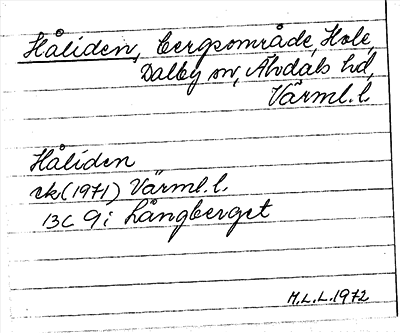 Håliden, bergsområde, Hole,
Dalby sn, Älvdals hd,
Värml. l.
Håliden
ek (1971) Värml. l.
13C 9i Långberget
M.L.L. 1972